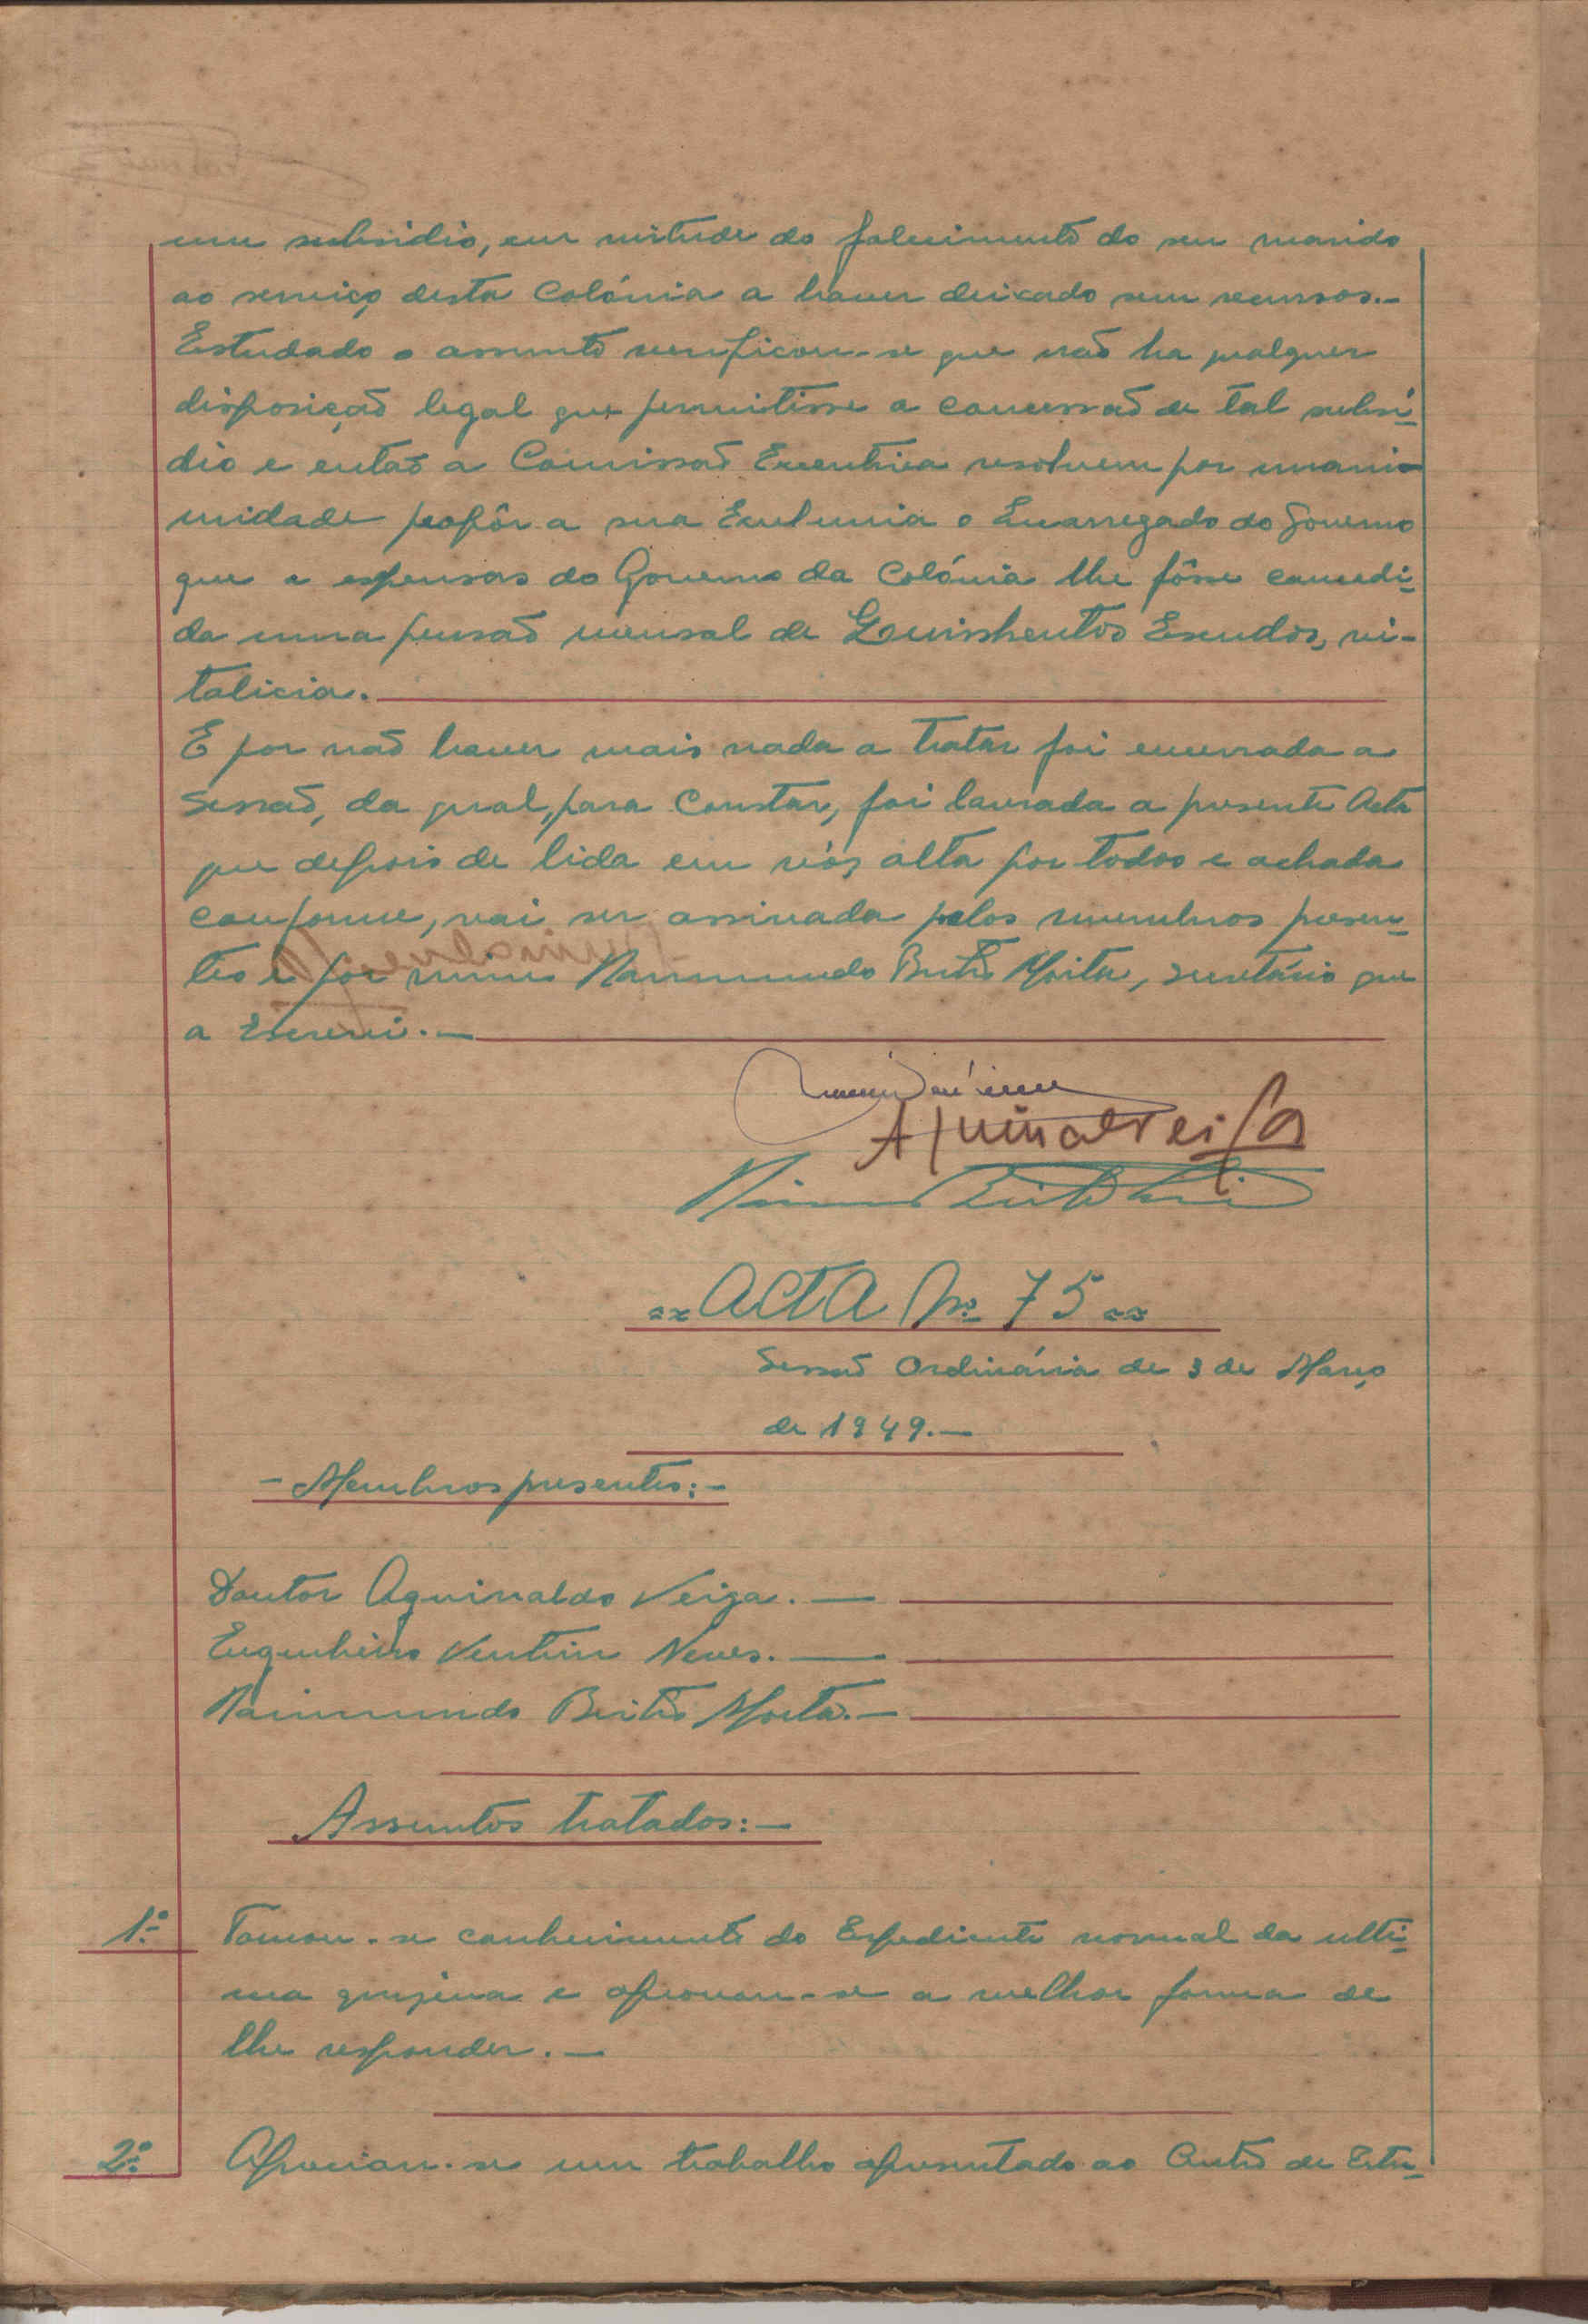 um subsidio, em virtude do falecimento do seu marido
ao serviço desta Colónia a haver deixado sem recursos.-
Estudado o assunto verificou-se que não ha qualquer
disposição legal que permitisse a concessão de tal subsí-
dio e então a Comissão Executiva resolveu por unani-
midade propôr a sua Excelencia o Encarregado do Governo
que a expensas do Governo da Colónia lhe fôsse concedi-
da uma pensão mensal de Quinhentos Escudos, vi-
talicia.
E por não haver mais nada a tratar foi encerrada a
Sessão, da qual, para Constar, foi lavrada a presente Acta
que depois de lida em vóz alta por todos e achada
conforme, vai ser assinada pelos membros presen-
tes e por mim Raimundo Brito Morta, secretário que
a Escrevi.-
ACTA No. 75
Sessão Ordinária de 3 de Março
de 1949.-
- Membros presentes:-
Doutor Aguinaldo Veiga.-
Engenheiro Ventim Neves.-
Raimundo Brito Morta.-
Assuntos tratados:-
1.º Tomou-se conhecimento do Expediente normal da ulti-
ma quinzena e aprovou-se a melhor forma de
lhe responder.-
2.º Apreciou-se um trabalho apresentado ao Centro de Estu-